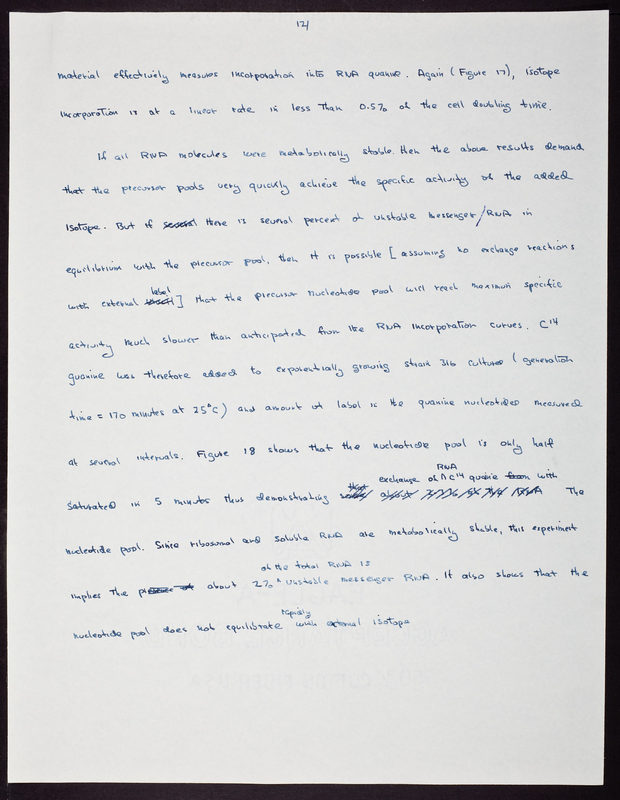 12/
material effectively measures incorporation into RNA guanine. Again (Figure 17), isotope
incorporation is at a linear rate in less than 0.5% of the cell doubling time.
If all RNA molecules were metabolically stable, then the above results demand
that the precursor pools very quickly achieve the specific activity of the added
isotope. But if several there is several percent of unstable messenger/RNA in
equilibrium with the precursor pool, then it is possible [assuming no exchange reactions
with external label] that the precursor nucleotide pool will reach maximum specific
activity much slower than anticipated from the RNA incorporation curves. C14
guanine was therefore added to exponentially growing strain 316 cultures (generation
time = 170 minutes at 25°C) and amount of label in the guanine nucleotides measured
at several intervals. Figure 18 shows that the nucleotide pool is only half
saturated in 5 minutes thus demonstrating exchange of RNA C14 guanine from with The
nucleotide pool. Since ribosomal and soluble RNA are metabolically stable, this experiment
implies the about 2% of the total RNA is unstable messenger RNA. It also shows that the
nucleotide pool does not equilibrate rapidly with external isotope